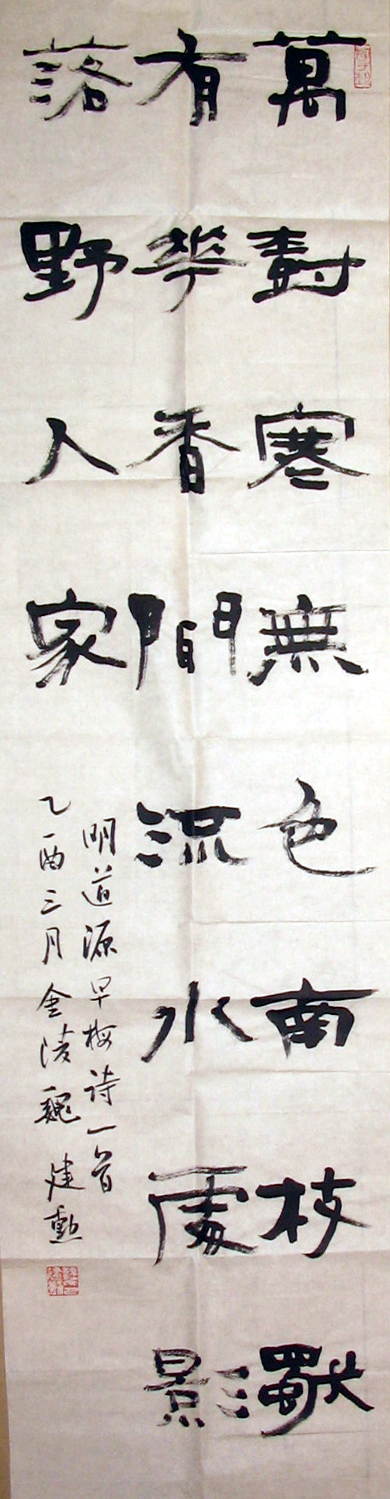 萬尌寒無色南枝獨
有華香聞流水處影
落野人家
明道源早梅詩一首
乙酉三月金陵魏建勲